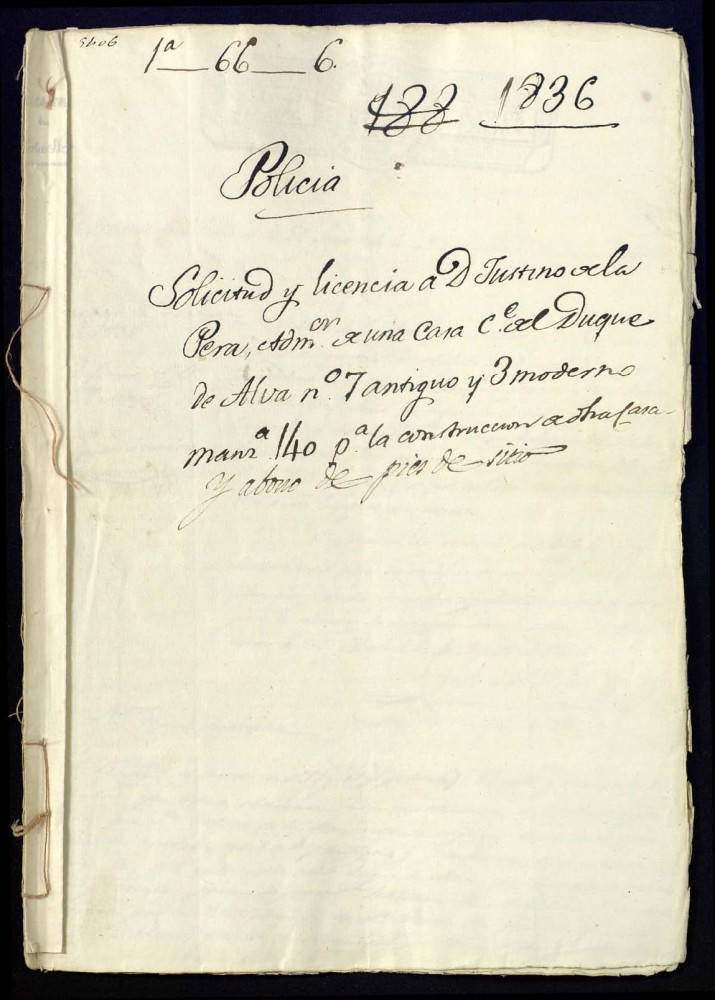 1ª 66 6.
188 1836
Policia
Solicitud y licencia a D Justino de la
Pera, Admon. de una Casa C.e del Duque
de Alva nº. 7 antiguo y 3 moderno
manz.ª 140 p.ª la construccion de dha Casa
Y abono de pies de sitio